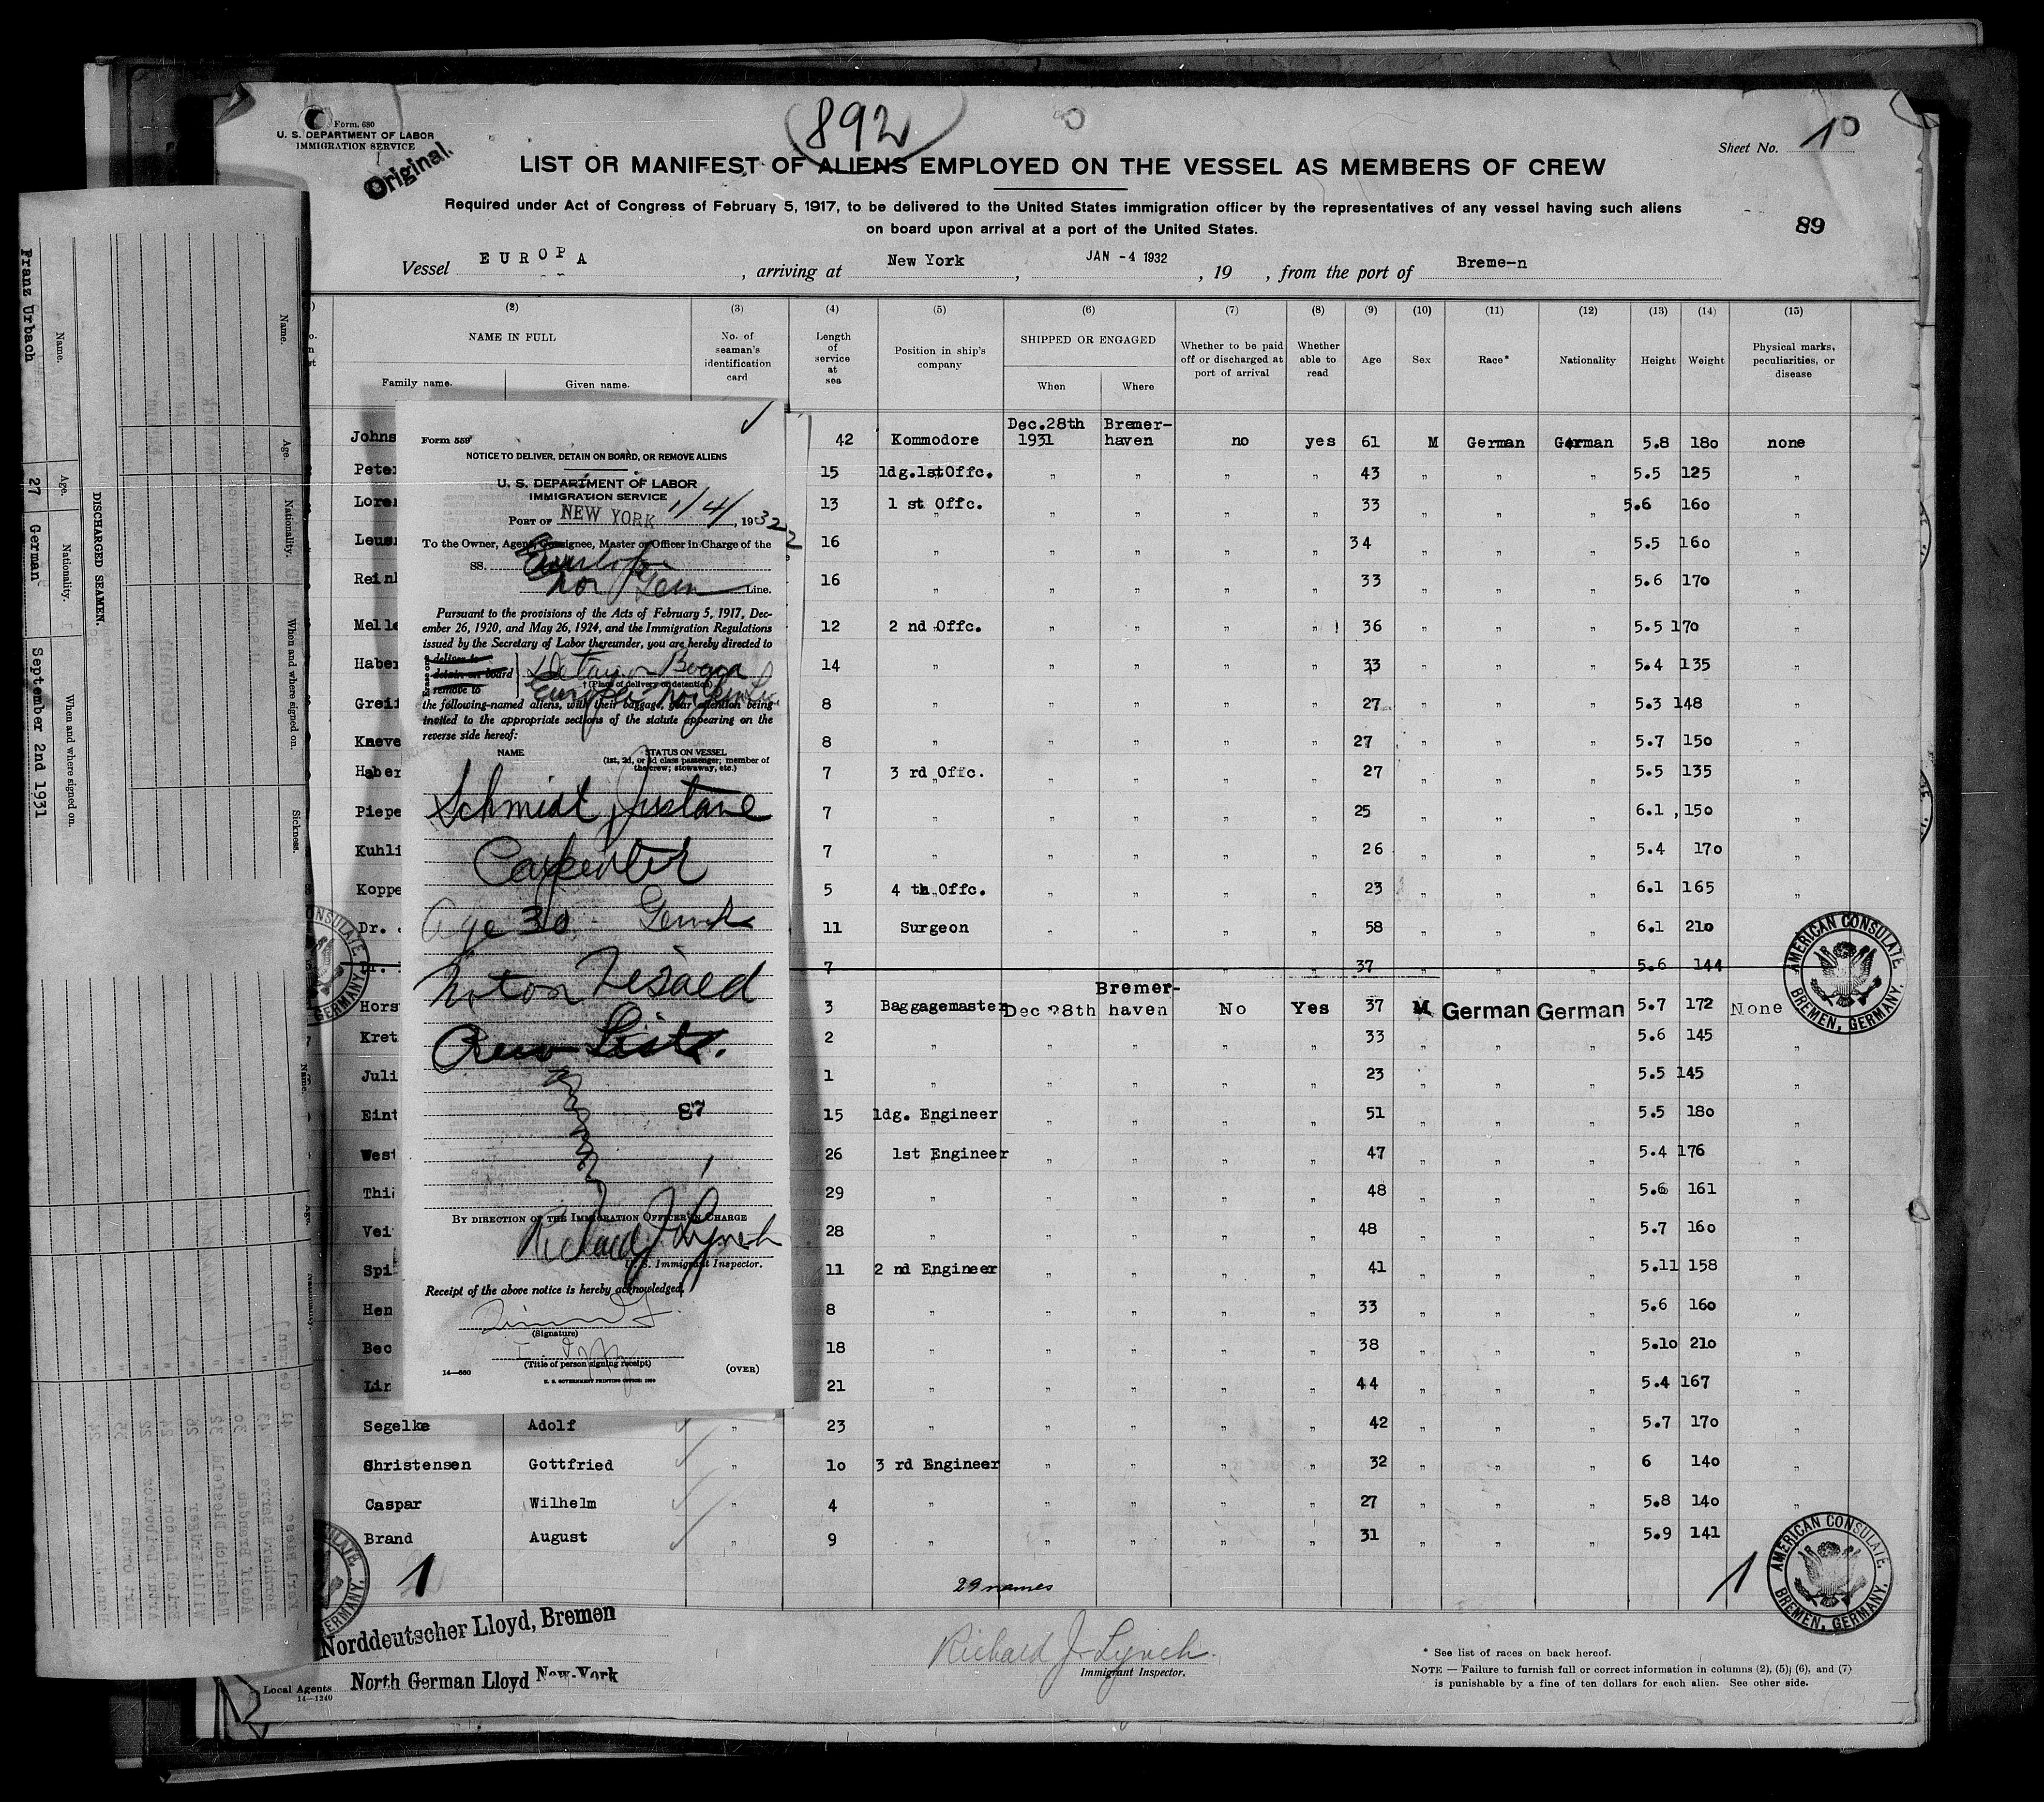 Form. 680
U. S. DEPARTMENT OF LABOR
IMMIGRATION SERVICE
Original.
892
Sheet No. 1
LIST OR MANIFEST OF ALIENS EMPLOYED ON THE VESSEL AS MEMBERS OF CREW
Required under Act of Congress of February 5, 1917, to be delivered to the United States immigration officer by the representatives of any vessel having such aliens
on board upon arrival at a port of the United States.
89
Vessel EUROPA , arriving at New York , JAN -4 1932 , 19 , from the port of Breme-n
(2) (3) (4) (5) (6) (7) (8) (9) (10) (11) (12) (13) (14) (15)
NAME IN FULL
Family name. Given name.
No. of seaman's identification card
Length of service at sea
Position in ship's company
SHIPPED OR ENGAGED
When Where
Whether to be paid off or discharged at port of arrival
Whether able to read
Age
Sex
Race*
Nationality
Height
Weight
Physical marks, peculiarities, or disease
Johns 42 Kommodore Dec.28th 1931 Bremer-haven no yes 61 M German German 5.8 180 none
Peter 15 ldg.1stOffc. " " " " 43 " " " 5.5 125 "
Loren 13 1 st Offc. " " " " 33 " " " 5.6 160 "
Leusn 16 " " " " " 34 " " " 5.5 160 "
Reinh 16 " " " " " 33 " " " 5.6 170 "
Melle 12 2 nd Offc. " " " " 36 " " " 5.5 170 "
Haber 14 " " " " " 33 " " " 5.4 135 "
Greif 8 " " " " " 27 " " " 5.3 148 "
Kneve 8 " " " " " 27 " " " 5.7 150 "
Haber 7 3 rd Offc. " " " " 27 " " " 5.5 135 "
Piepe 7 " " " " " 25 " " " 6.1 150 "
Kuhli 7 " " " " " 26 " " " 5.4 170 "
Koppe 5 4 th Offc. " " " " 23 " " " 6.1 165 "
Dr. 11 Surgeon " " " " 58 " " " 6.1 210 "
Dr. 7 " " " " " 37 " " " 5.6 144 "
Horst 3 Baggagemaster Dec 28th Bremer-haven No Yes 37 M German German 5.7 172 None
Kret 2 " " " " " 33 " " " 5.6 145 "
Juli 1 " " " " " 23 " " " 5.5 145 "
Eint 15 ldg. Engineer " " " " 51 " " " 5.5 180 "
West 26 1st Engineer " " " " 47 " " " 5.4 176 "
Thi 29 " " " " " 48 " " " 5.6 161 "
Vei 28 " " " " " 48 " " " 5.7 160 "
Spi 11 2 nd Engineer " " " " 41 " " " 5.11 158 "
Hen 8 " " " " " 33 " " " 5.6 160 "
Bec 18 " " " " " 38 " " " 5.10 210 "
Lin 21 " " " " " 44 " " " 5.4 167 "
Segelke Adolf " 23 " " " " " 42 " " " 5.7 170 "
Christensen Gottfried " 10 3 rd Engineer " " " " 32 " " " 6 140 "
Caspar Wilhelm " 4 " " " " " 27 " " " 5.8 140 "
Brand August " 9 " " " " " 31 " " " 5.9 141 "
1
29 names
1
Norddeutscher Lloyd, Bremen
North German Lloyd New-York
Local Agents
14—1240
Richard J Lynch.
Immigrant Inspector.
* See list of races on back hereof.
NOTE — Failure to furnish full or correct information in columns (2), (5), (6), and (7)
is punishable by a fine of ten dollars for each alien. See other side.
AMERICAN CONSULATE.
BREMEN, GERMANY.
AMERICAN CONSULATE.
BREMEN, GERMANY.
Form 559
NOTICE TO DELIVER, DETAIN ON BOARD, OR REMOVE ALIENS
U. S. DEPARTMENT OF LABOR
IMMIGRATION SERVICE
PORT OF NEW YORK 1/4/, 1932
To the Owner, Agent, Consignee, Master or Officer in Charge of the
SS. Europa
Nor Ger Line.
Pursuant to the provisions of the Acts of February 5, 1917, Dec-
ember 26, 1920, and May 26, 1924, and the Immigration Regulations
issued by the Secretary of Labor thereunder, you are hereby directed to
Erase one
deliver to
detain on board
remove to
† (Place of delivery or detention)
the following-named aliens, with their baggage, your attention being
invited to the appropriate sections of the statute appearing on the
reverse side hereof:
NAME STATUS ON VESSEL
(1st, 2d, or 3d class passenger; member of
the crew; stowaway, etc.)
Schmidt, Gustave
Carpenter
Age 30 Germ
Not on Visaed
Crew List.
87
BY DIRECTION OF THE IMMIGRATION OFFICER IN CHARGE
Richard J Lynch
U. S. Immigrant Inspector.
Receipt of the above notice is hereby acknowledged.
(Signature)
(Title of person signing receipt)
14—560 (OVER)
U. S. GOVERNMENT PRINTING OFFICE: 1930
DISCHARGED SEAMEN.
Name. Age. Nationality. When and where signed on.
Franz Urbach 27 German September 2nd 1931
Name. Age. Nationality. When and where signed on. Sickness.